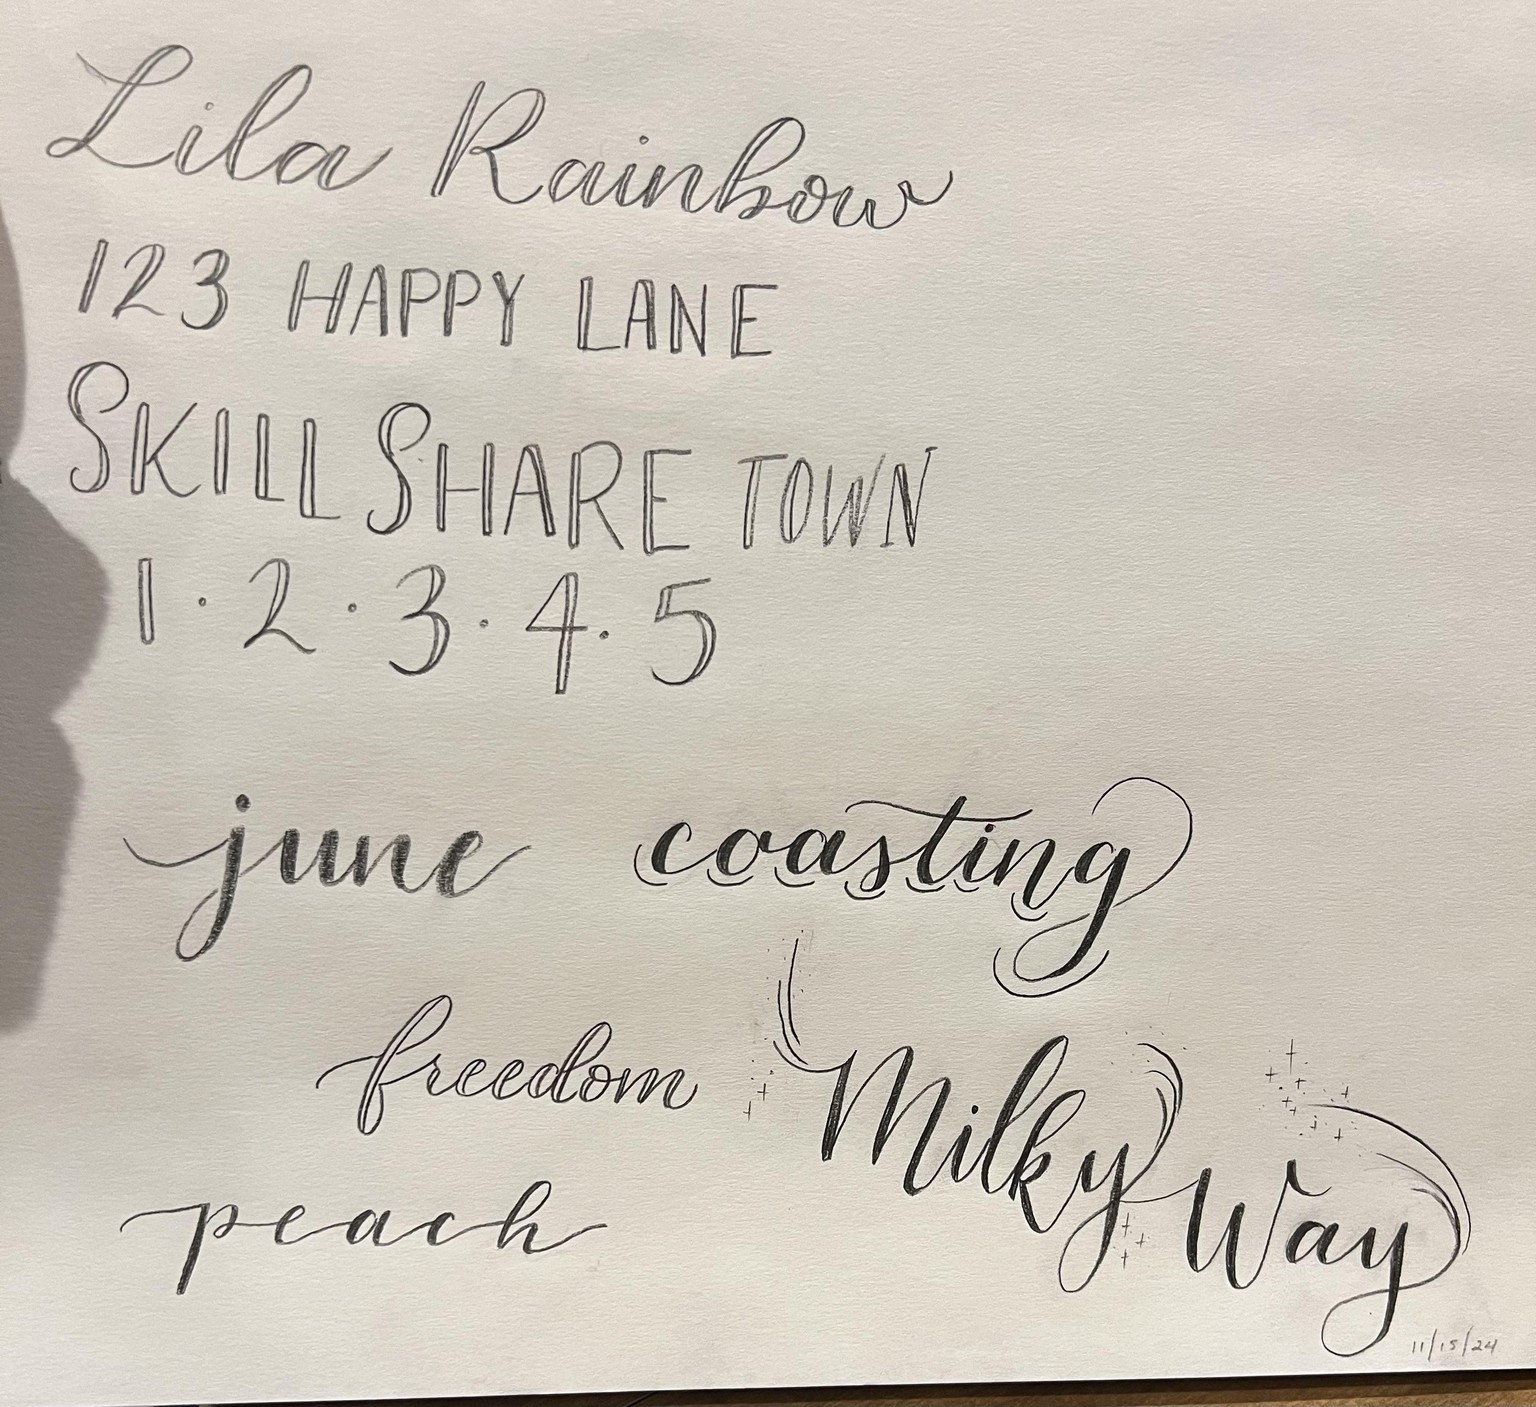 Lila Rainbow
123 HAPPY LANE
SKILLSHARE TOWN
1·2·3·4·5
june coasting
freedom
Milky Way
peach
11/15/24